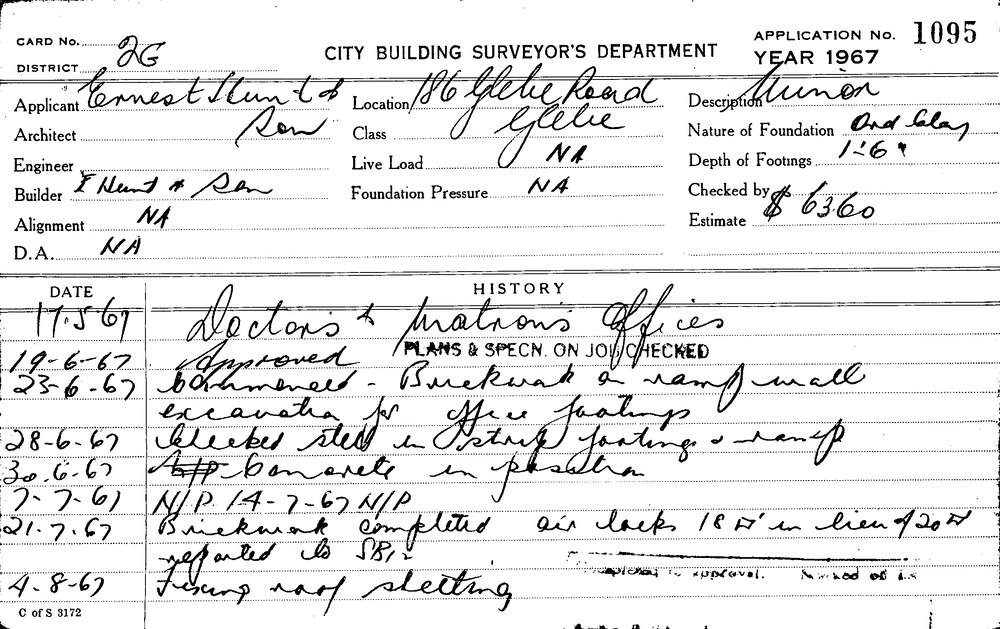 CARD No.
2G
DISTRICT
CITY BUILDING SURVEYOR'S DEPARTMENT
APPLICATION No. 1095
YEAR 1967
Applicant Ernest Hunt &
Son
Architect
Engineer
Builder E Hunt & Son
Alignment NA
D.A. NA
Location 186 Glebe Road
Class Glebe
Live Load NA
Foundation Pressure NA
Description Minor
Nature of Foundation Ord Clay
Depth of Footings 1'-6"
Checked by
Estimate $ 6360
DATE HISTORY
17.5.67 Doctors & Matrons Offices
19-6-67 Approved PLANS & SPECN. ON JOB CHECKED
23-6-67 Commenced - Brickwork on ramp wall
excavation for office footings
28-6-67 Checked steel in strip footings & ramp
30.6.67 Concrete in position
7-7-67 N/P 14-7-67 N/P
21.7.67 Brickwork completed air locks 18 in lieu of 20
reported to SBI
4-8-67 Fixing roof sheeting
approval.
C of S 3172